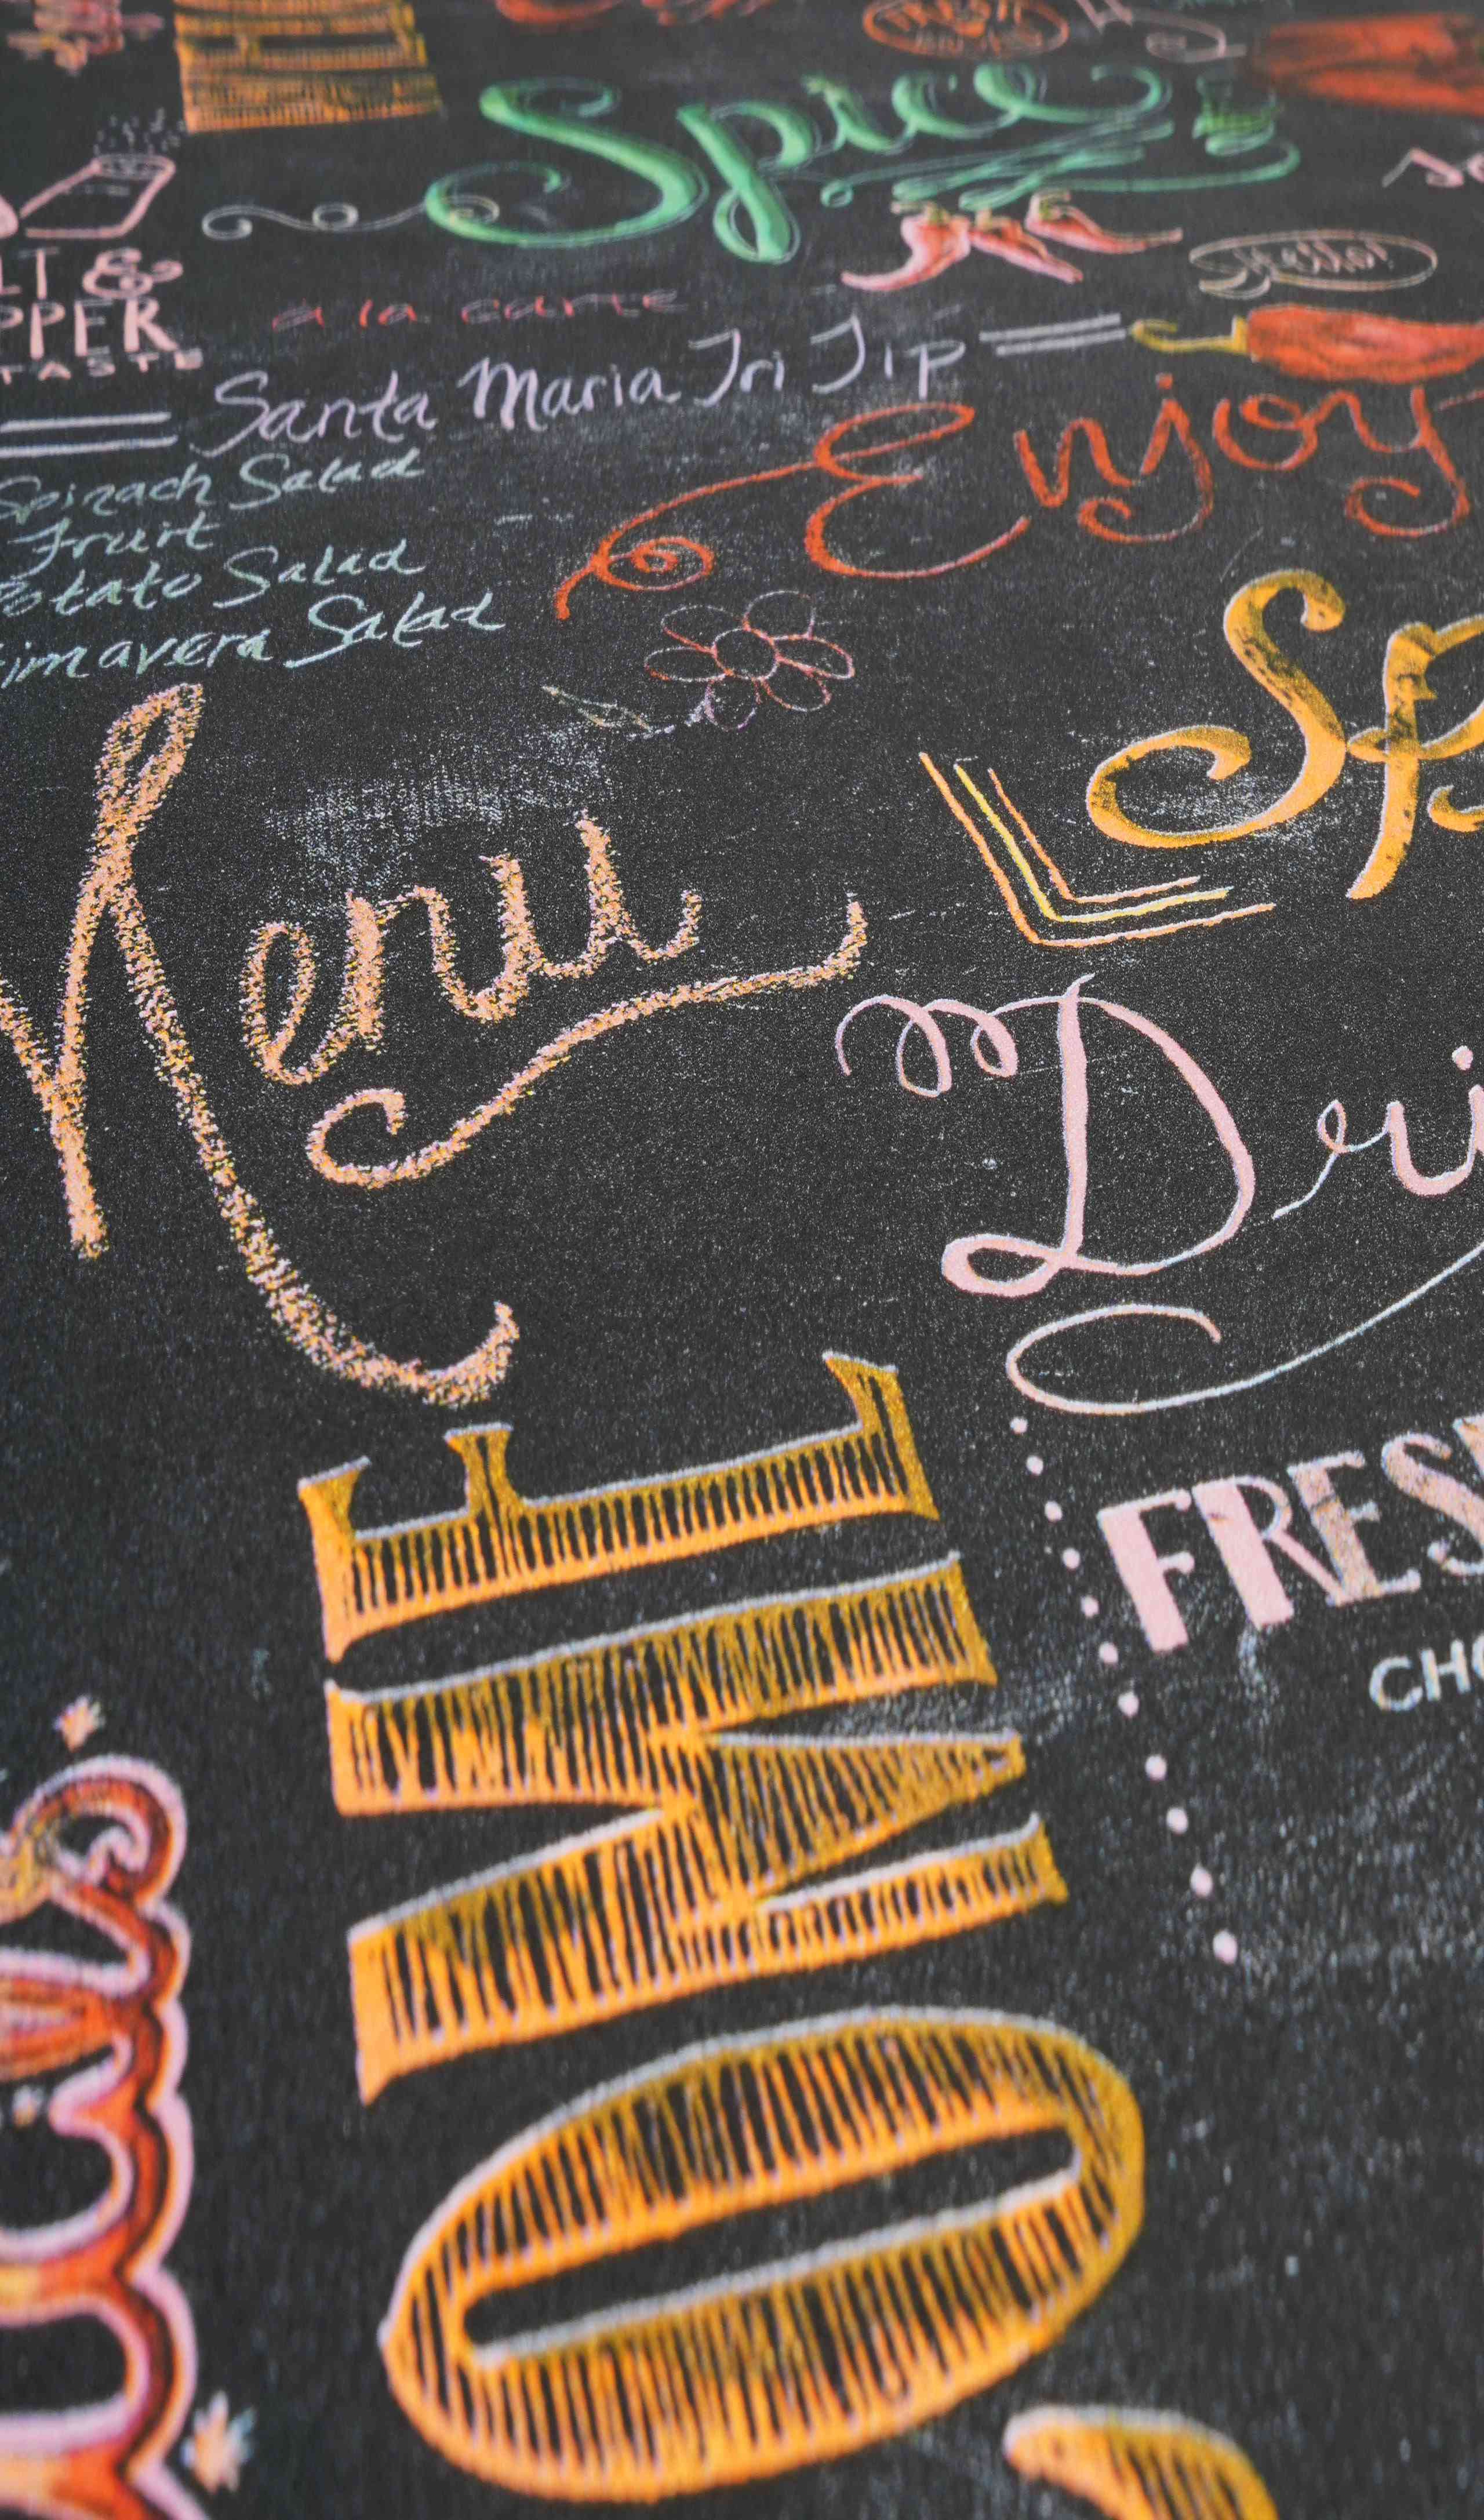 FRESH
Spice
LT &
PPER
TASTE
Hello!
a la carte
Santa Maria Tri Tip
Enjoy
Spinach Salad
Fruit
Potato Salad
imavera Salad
Sp
Menu
Dri
FRES
CHO
OME